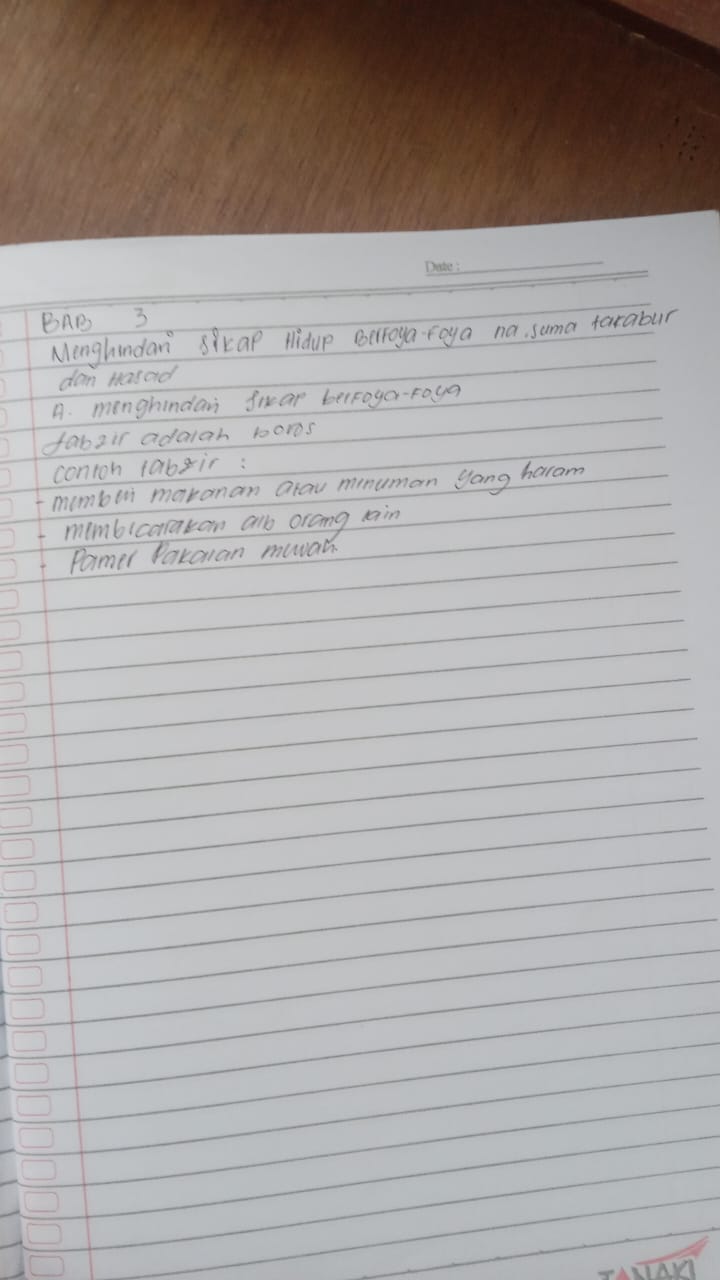 Date :
BAB 3
Menghindari sikap Hidup Berfoya-foya na, suma takabur
dan Hasad
A. menghindari sikap berfoya-foya
tabzir adalah boros
contoh tabzir :
- memberi makanan atau minuman yang haram
- membicarakan aib orang lain
- Pamer Pakaian mewah
TANAKI